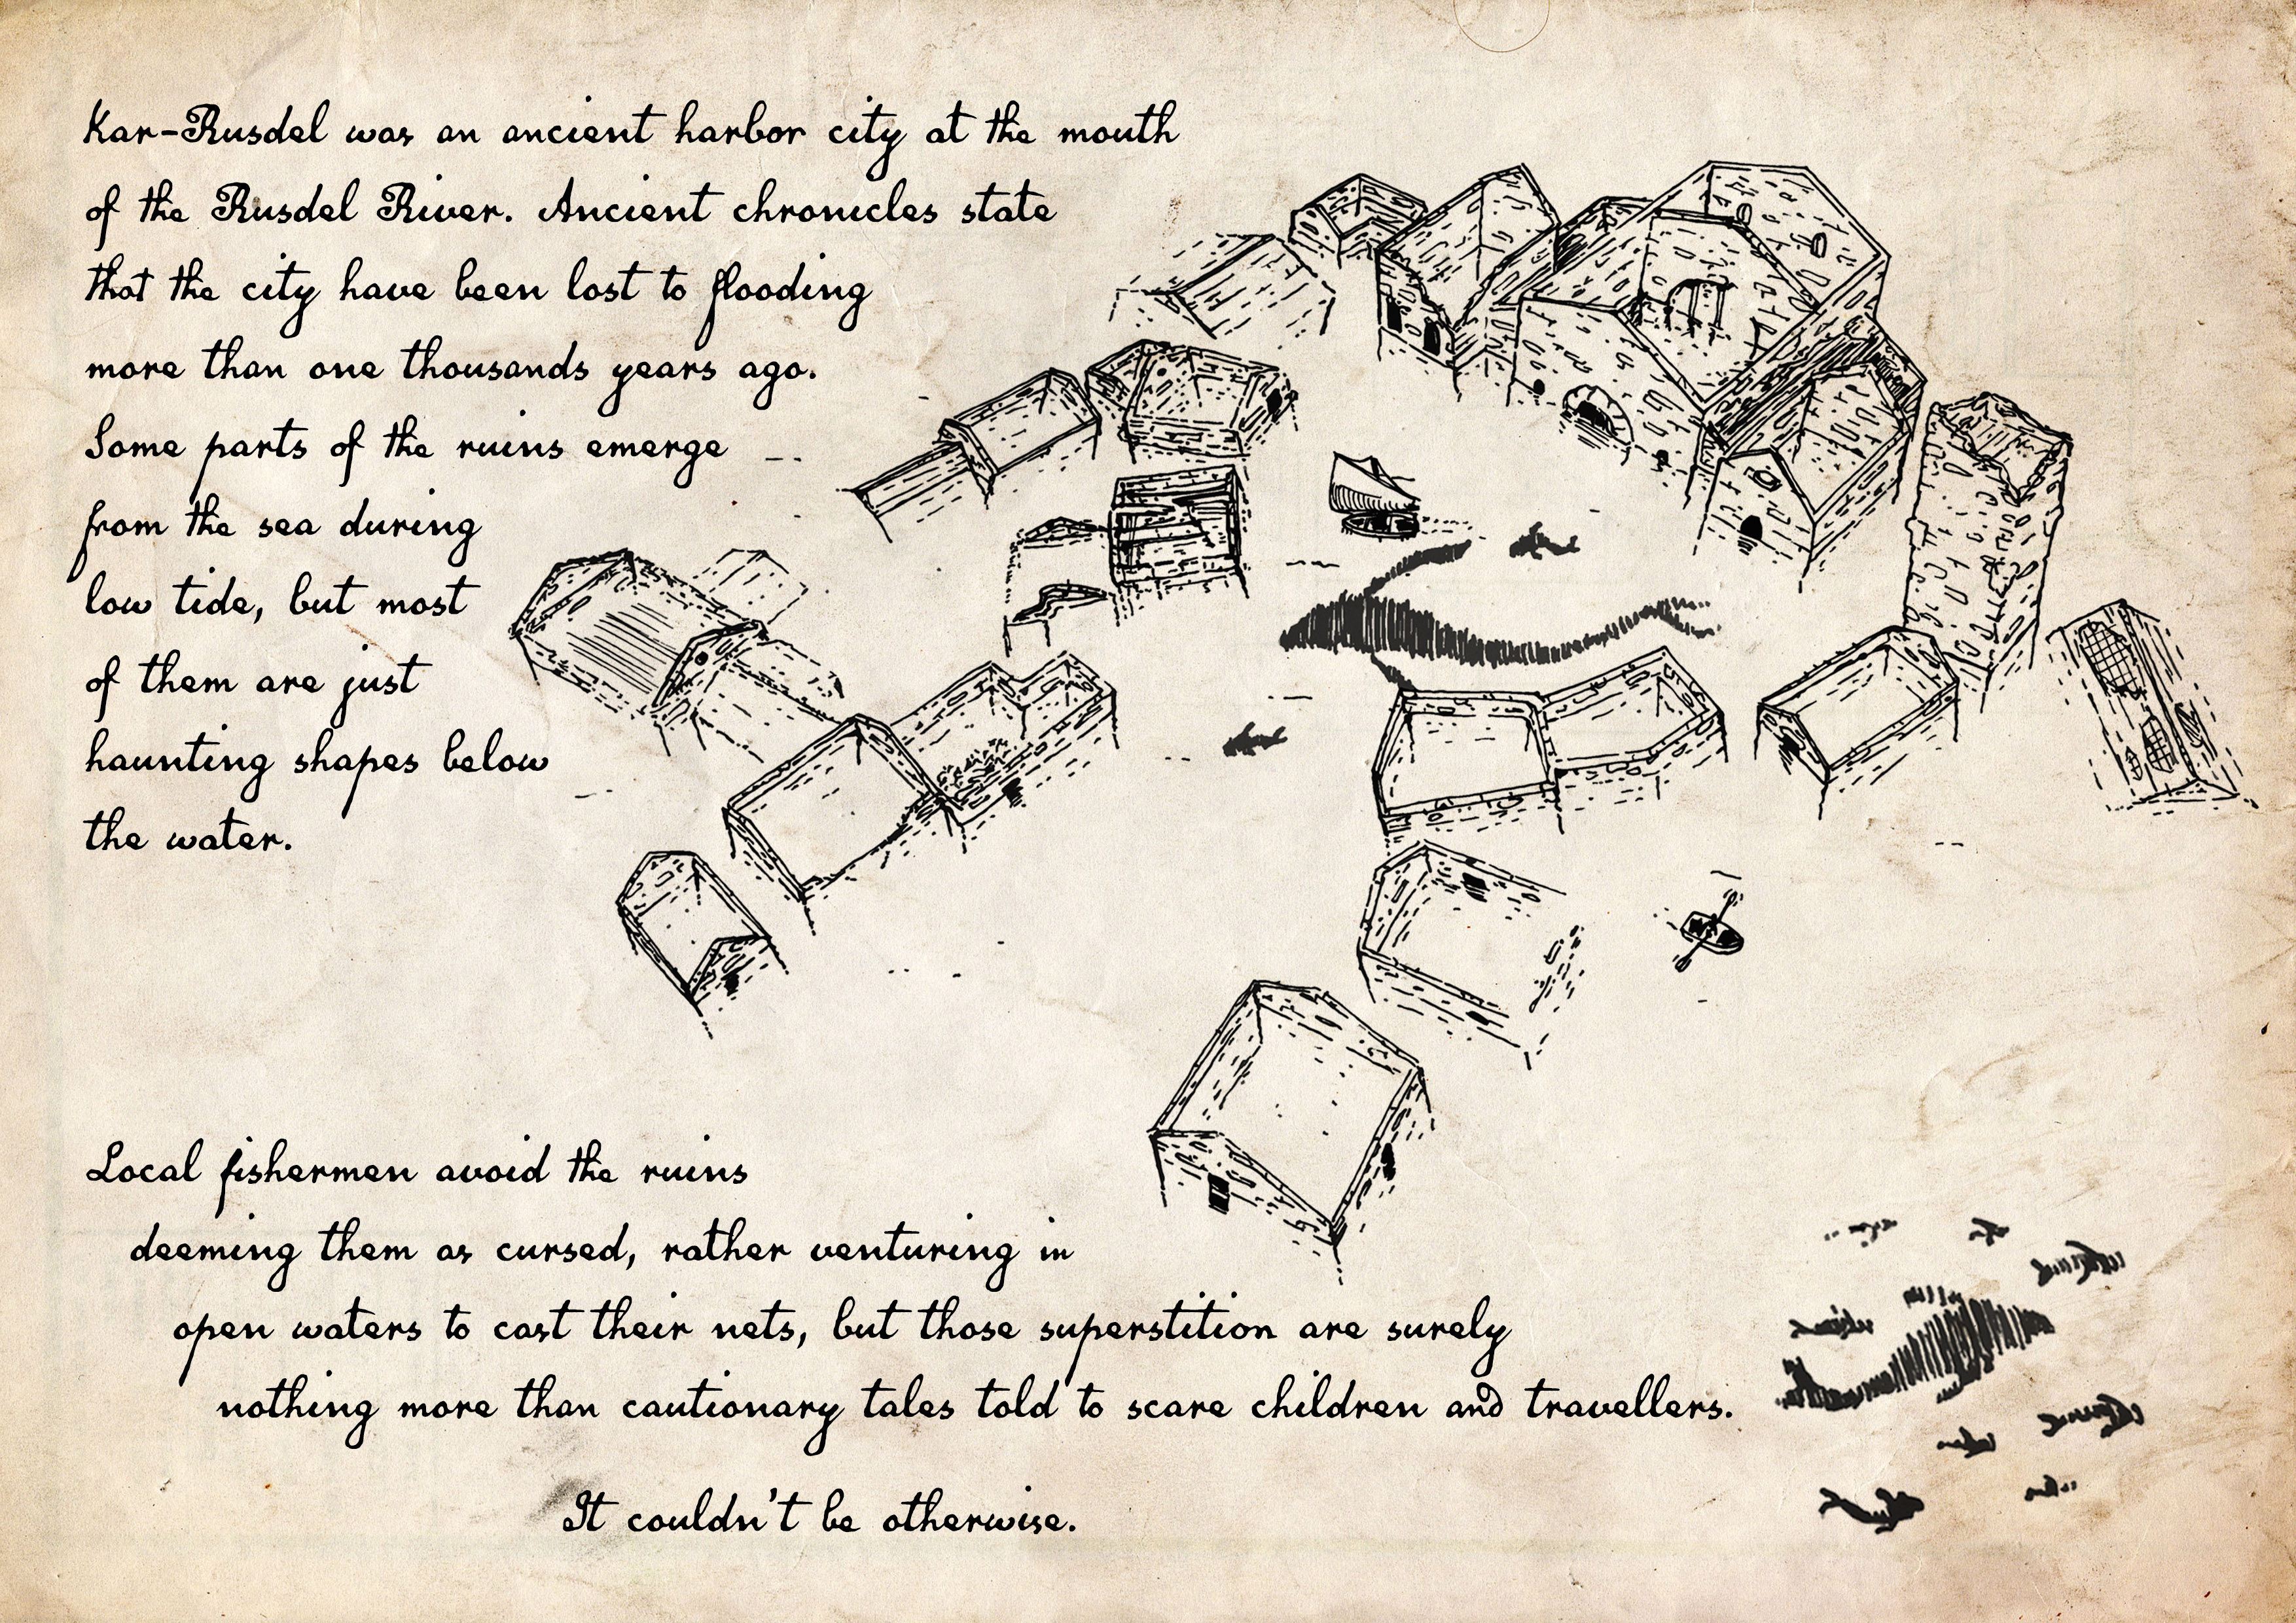 Kar-Rusdel was an ancient harbor city at the mouth
of the Rusdel River. Ancient chronicles state
that the city have been lost to flooding
more than one thousands years ago.
Some parts of the ruins emerge
from the sea during
low tide, but most
of them are just
haunting shapes below
the water.
Local fishermen avoid the ruins
deeming them as cursed, rather venturing in
open waters to cast their nets, but those superstition are surely
nothing more than cautionary tales told to scare children and travellers.
It couldn't be otherwise.